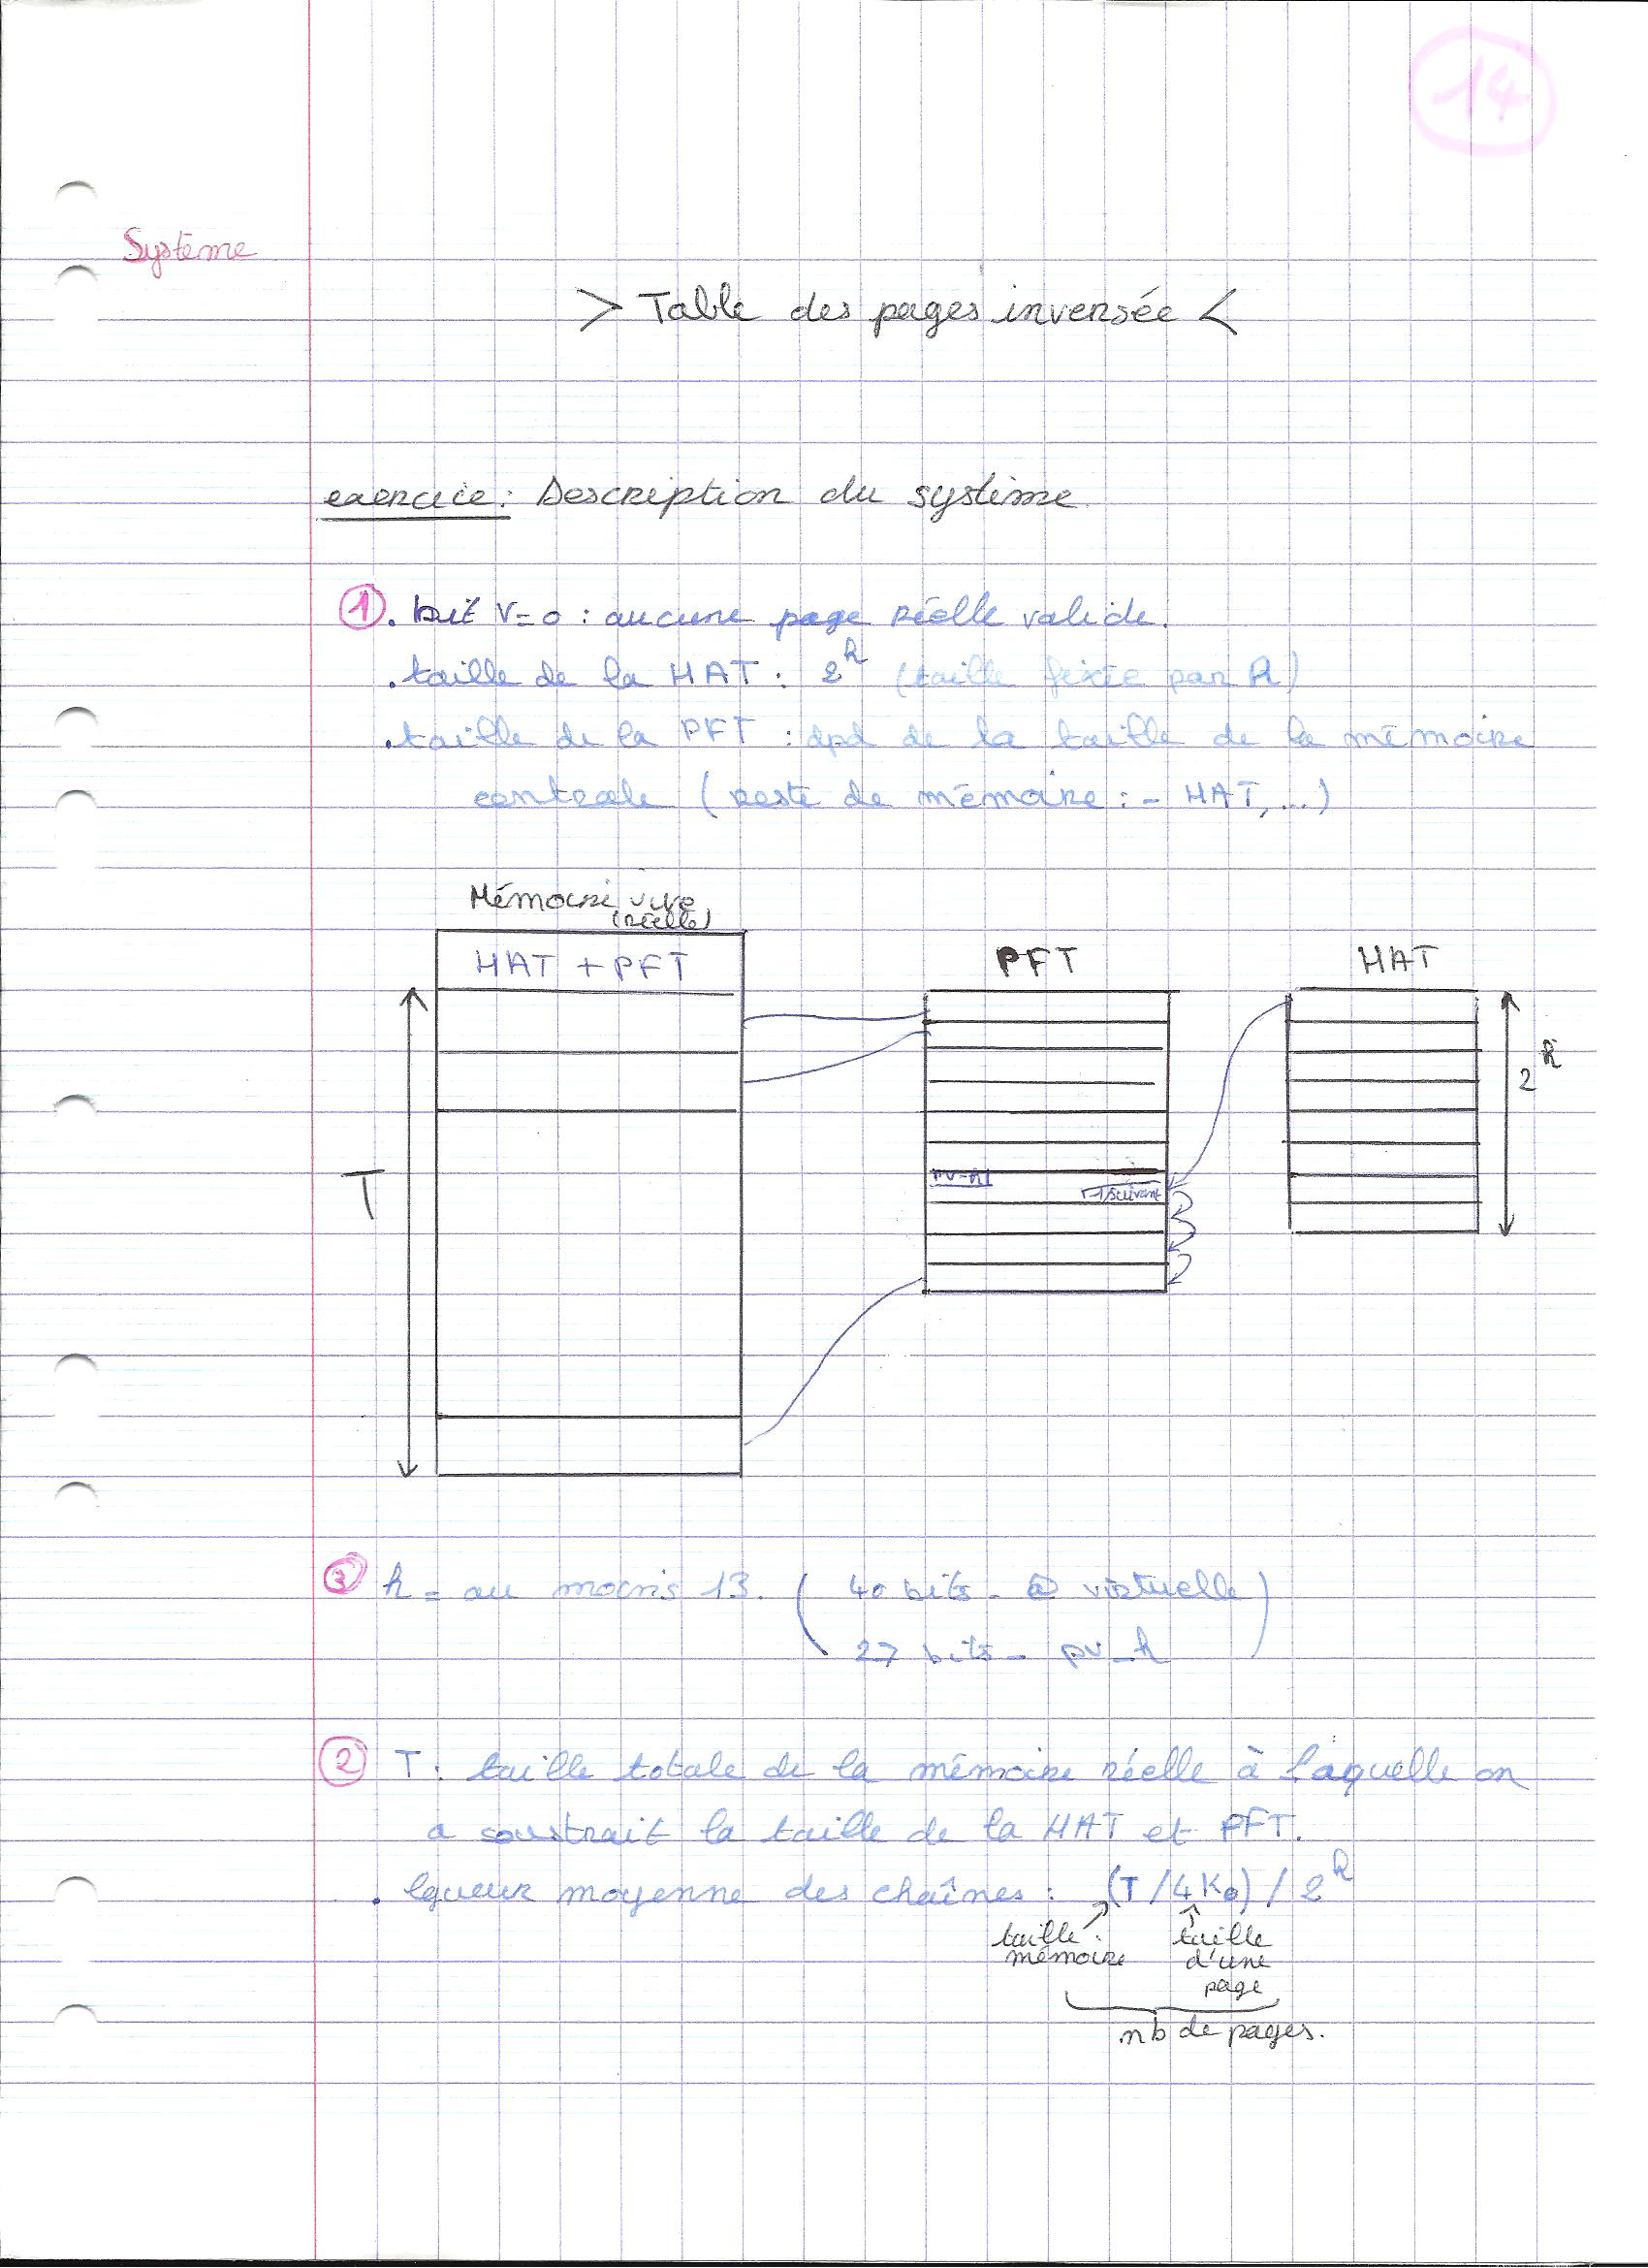 14
Système
> Table des pages inversée <
exercice : Description du système
① . bit V=0 : aucune page réelle valide.
. taille de la HAT : 2^h (taille fixée par h)
. taille de la PFT : dpd de la taille de la mémoire
centrale (reste de mémoire : - HAT, ...)
Mémoire vive
(réelle)
HAT + PFT
PFT
HAT
T
pv-h1
suivant
2^h
③ h = au moins 13. ( 40 bits - @ virtuelle
27 bits - pv-h )
② T : taille totale de la mémoire réelle à laquelle on
a soustrait la taille de la HAT et PFT.
. lgueur moyenne des chaînes : (T / 4Ko) / 2^h
taille mémoire
taille d'une page
nb de pages.